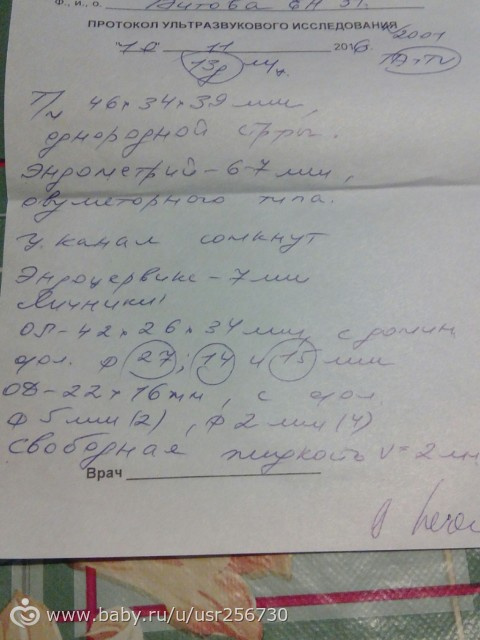 Ф., и., о.
ПРОТОКОЛ УЛЬТРАЗВУКОВОГО ИССЛЕДОВАНИЯ
11 2016
13д м.ц.
46×34×39 мм,
однородной стры.
Эндометрий - 6-7 мм,
овуляторного типа.
ц. канал сомкнут
Эндоцервикс - 7 мм
Яичники:
ОП - 42×26×34 мм, с домин.
фол. ф 27; 14 и 15 мм
22×16мм, с фол.
ф 5 мм (2), ф 2 мм (4)
Свободная жидкость V=2 мл
Врач
www.baby.ru/u/usr256730